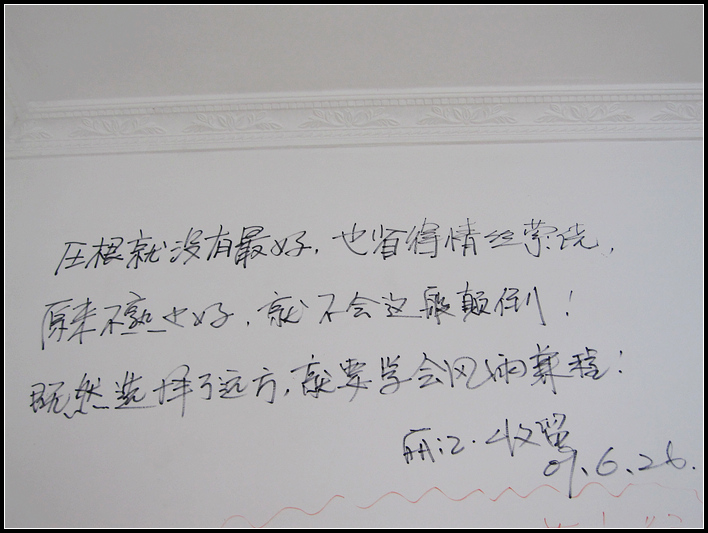 压根就没有最好，也省得情丝萦绕，
原来不熟也好，就不会这般颠倒！
既然选择了远方，就要学会风雨兼程！
丽江·收留
09.6.26.